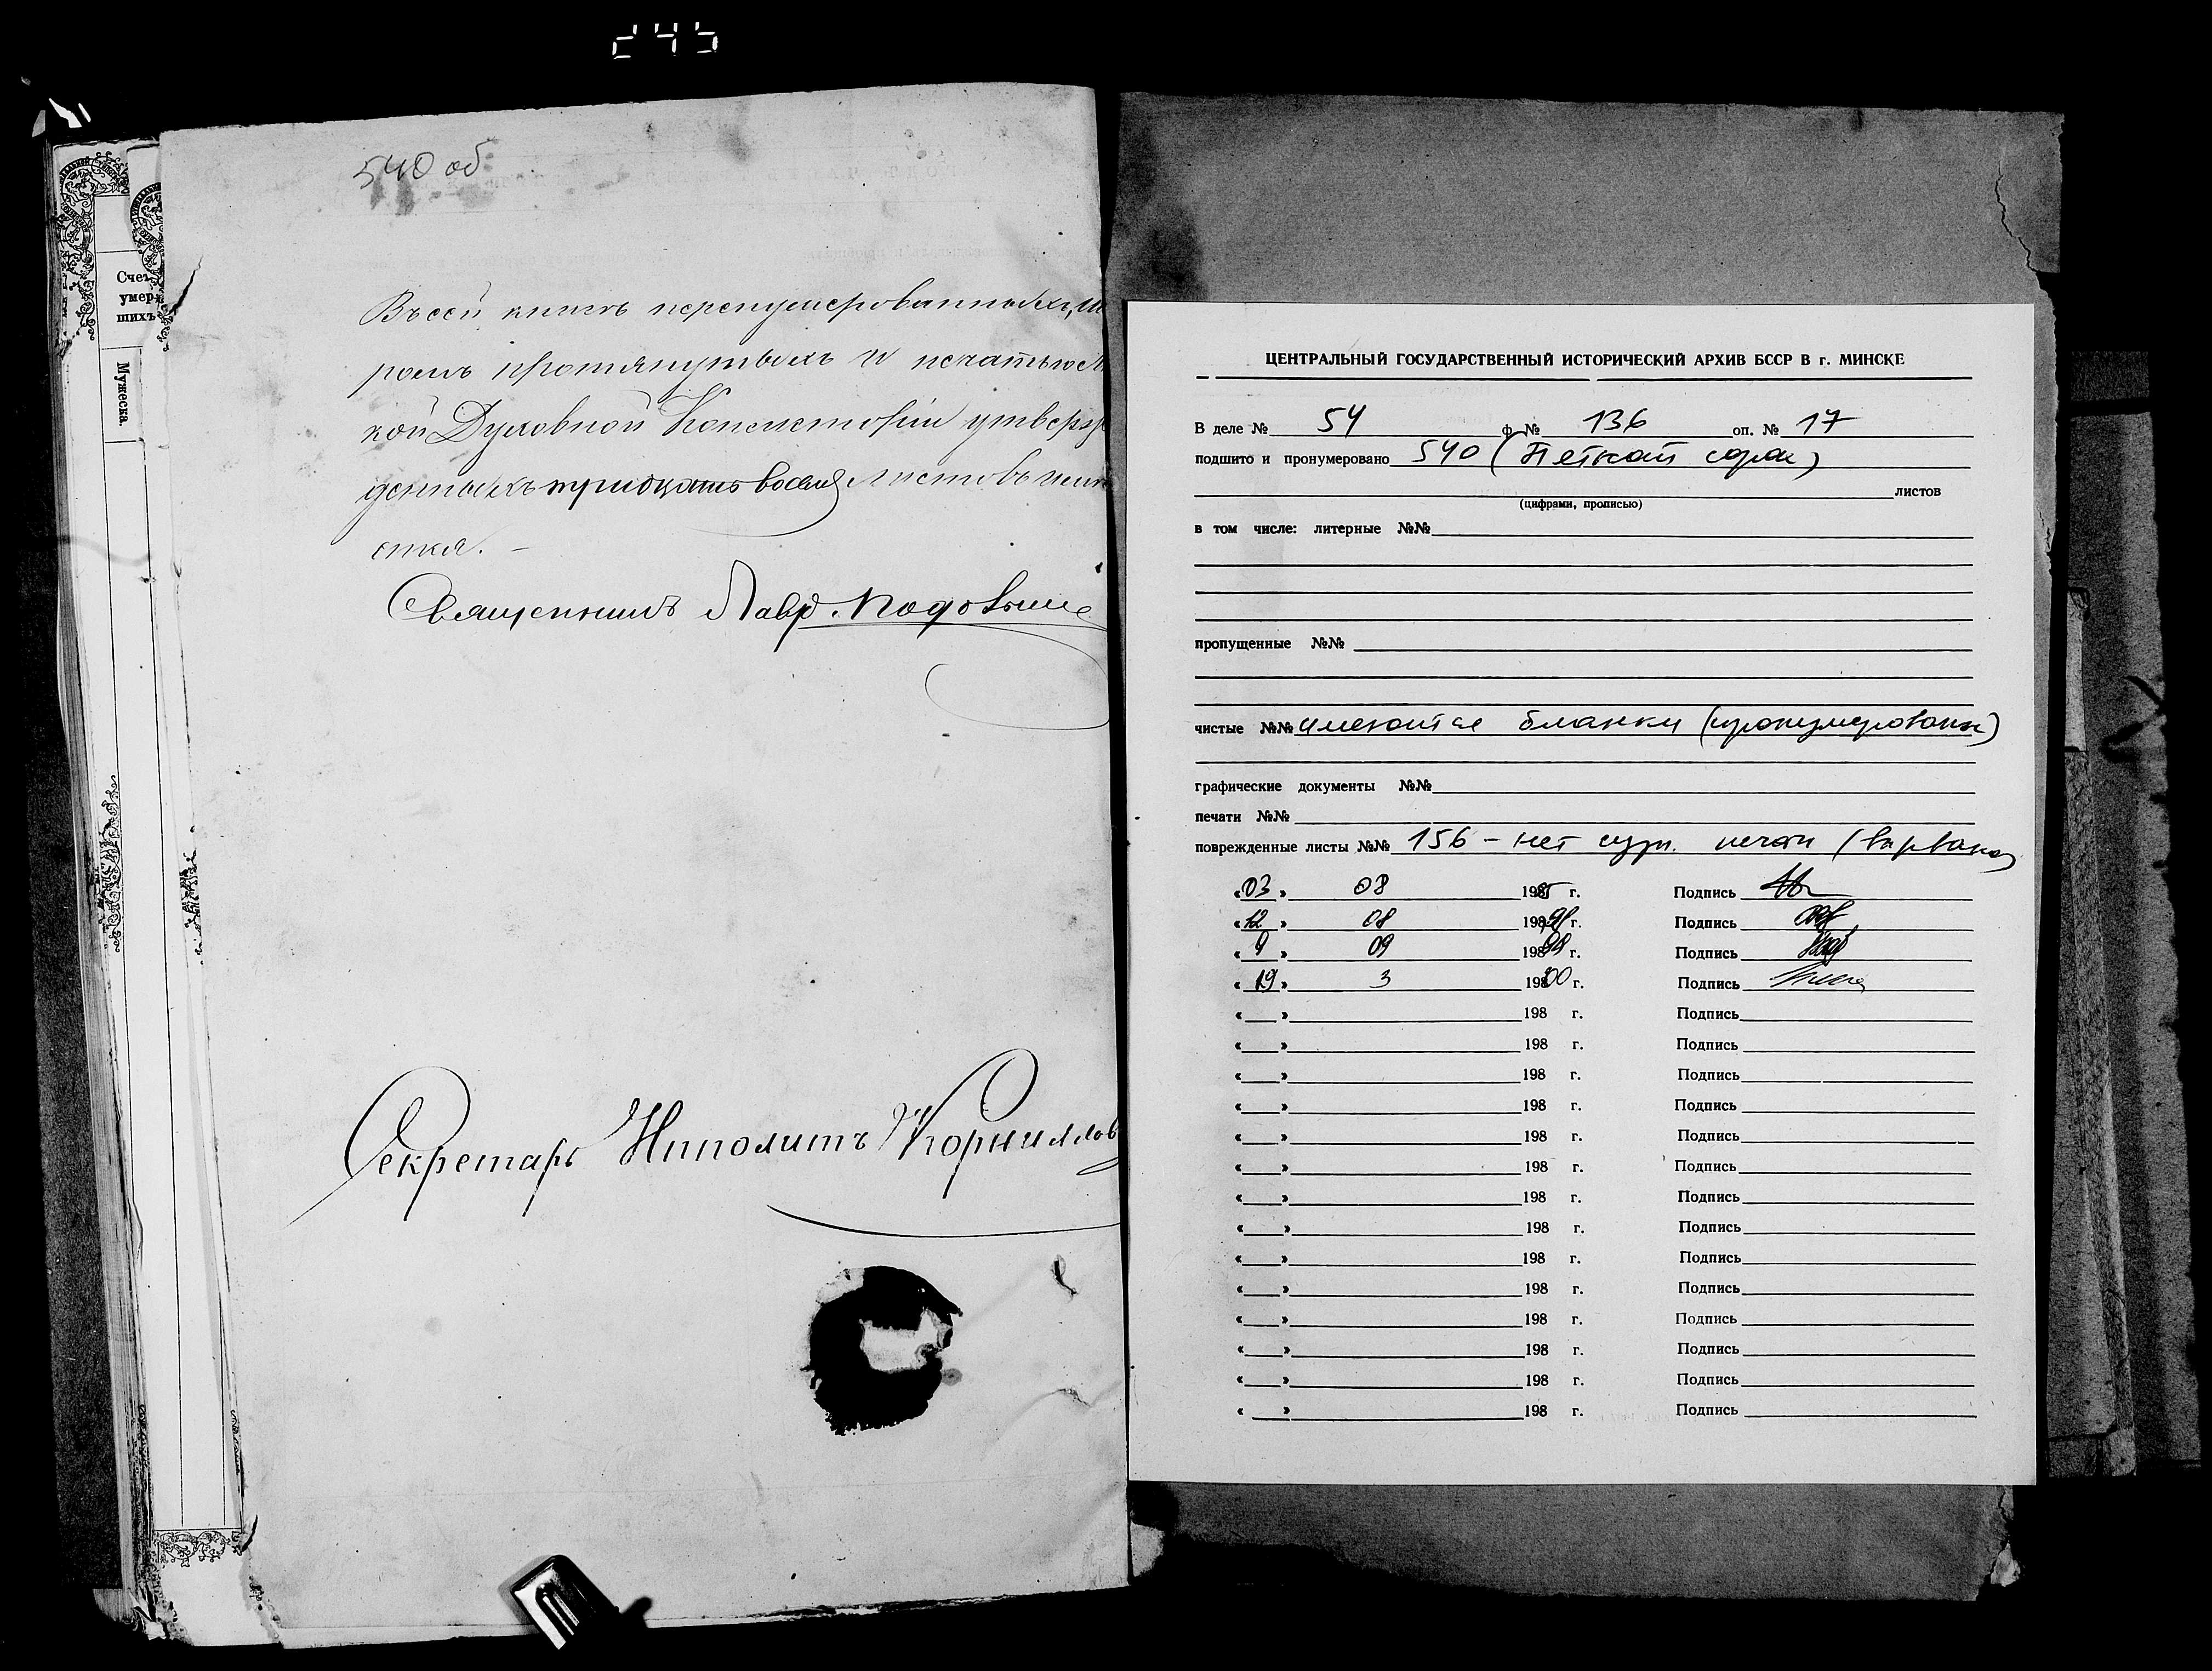 245
540 об
Счетъ
умер-
шихъ
Мужеска.
Въ сей книгѣ перенумерованныхъ, ш
ромъ протянутыхъ и печатью
кой Духовной Консисторіи утверж
денныхъ тридцать восемь листовъ
ется. –
Священникъ Лавр.
Секретарь Ипполитъ Корниллов
ЦЕНТРАЛЬНЫЙ ГОСУДАРСТВЕННЫЙ ИСТОРИЧЕСКИЙ АРХИВ БССР В г. МИНСКЕ
В деле № 54 ф. № 136 оп. № 17
подшито и пронумеровано 540 (Пятьсот сорок)
листов
(цифрами, прописью)
в том числе: литерные №№
пропущенные №№
чистые №№ имеются бланки (пронумерованы)
графические документы №№
печати №№
поврежденные листы №№ 156 – нет сург. печати (вырвана)
« 03 » 08 1985 г. Подпись
« 12 » 08 198 г. Подпись
« 9 » 09 198 г. Подпись
« 19 » 3 198 00 г. Подпись
« » 198 г. Подпись
« » 198 г. Подпись
« » 198 г. Подпись
« » 198 г. Подпись
« » 198 г. Подпись
« » 198 г. Подпись
« » 198 г. Подпись
« » 198 г. Подпись
« » 198 г. Подпись
« » 198 г. Подпись
« » 198 г. Подпись
« » 198 г. Подпись
« » 198 г. Подпись
« » 198 г. Подпись